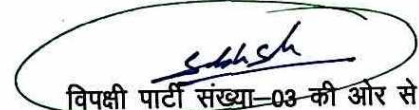 विपक्षी पार्टी संख्या–03 की ओर से